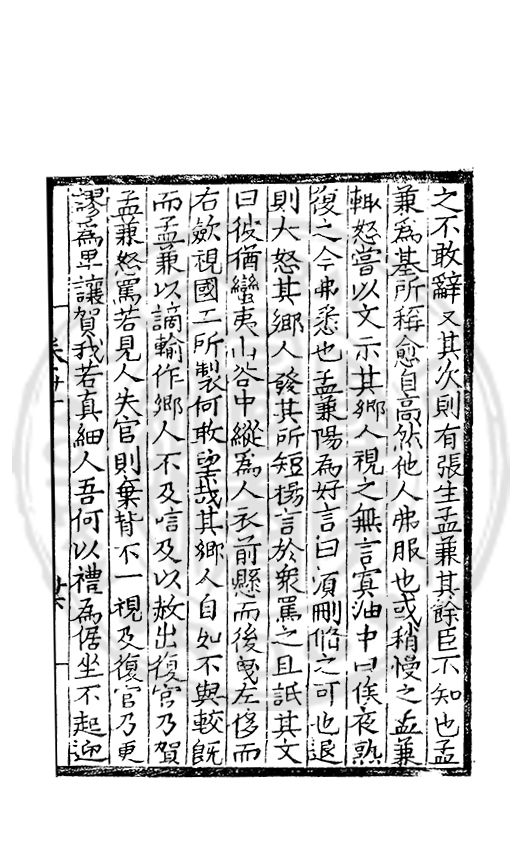 之不敢辭又其次則有張生孟兼其餘臣不知也孟
兼爲基所稱愈自高然他人弗服也或稍慢之孟兼
輙怒嘗以文示其鄉人視之無言寘袖中曰俟夜熟
復之今弗悉也孟兼陽為好言曰須刪脩之可也退
則大怒其鄉人發其所短揚言於衆罵之且詆其文
曰彼猶蠻夷山谷中縱為人衣前懸而後曳左侈而
右歛視國工所製何敢望哉其鄉人自知不與較旣
而孟兼以謫輸作鄉人不及唁及以赦出復官乃賀
孟兼怒罵若見人失官則棄背不一視及復官乃更
謬為卑讓賀我若真細人吾何以禮為倨坐不起迎